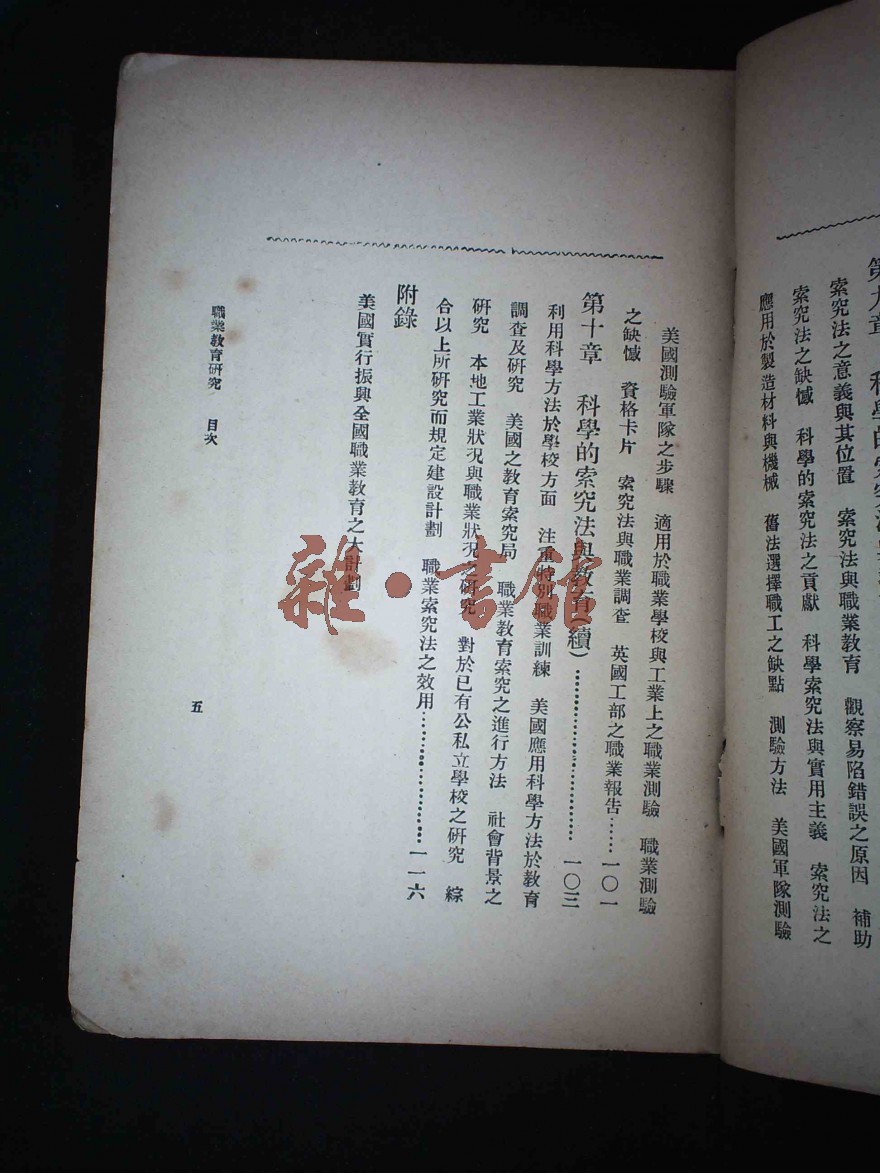 第九章 科學的索究法與教育
索究法之意義與其位置 索究法與職業教育 觀察易陷錯誤之原因 補助
索究法之缺憾 科學的索究法之貢獻 科學索究法與實用主義 索究法之
應用於製造材料與機械 舊法選擇職工之缺點 測驗方法 美國軍隊測驗
美國測驗軍隊之步驟 適用於職業學校與工業上之職業測驗 職業測驗
之缺憾 資格卡片 索究法與職業調查 英國工部之職業報告……一〇一
第十章 科學的索究法與教育(續)……………………一〇三
利用科學方法於學校方面 注重特別職業訓練 美國應用科學方法於教育
調查及研究 美國之教育索究局 職業教育索究之進行方法 社會背景之
研究 本地工業狀況與職業狀況之研究 對於已有公私立學校之研究 綜
合以上所研究而規定建設計劃 職業索究法之效用………………一一六
附錄
美國實行振興全國職業教育之大計劃
職業教育研究 目次
五
雜·書館